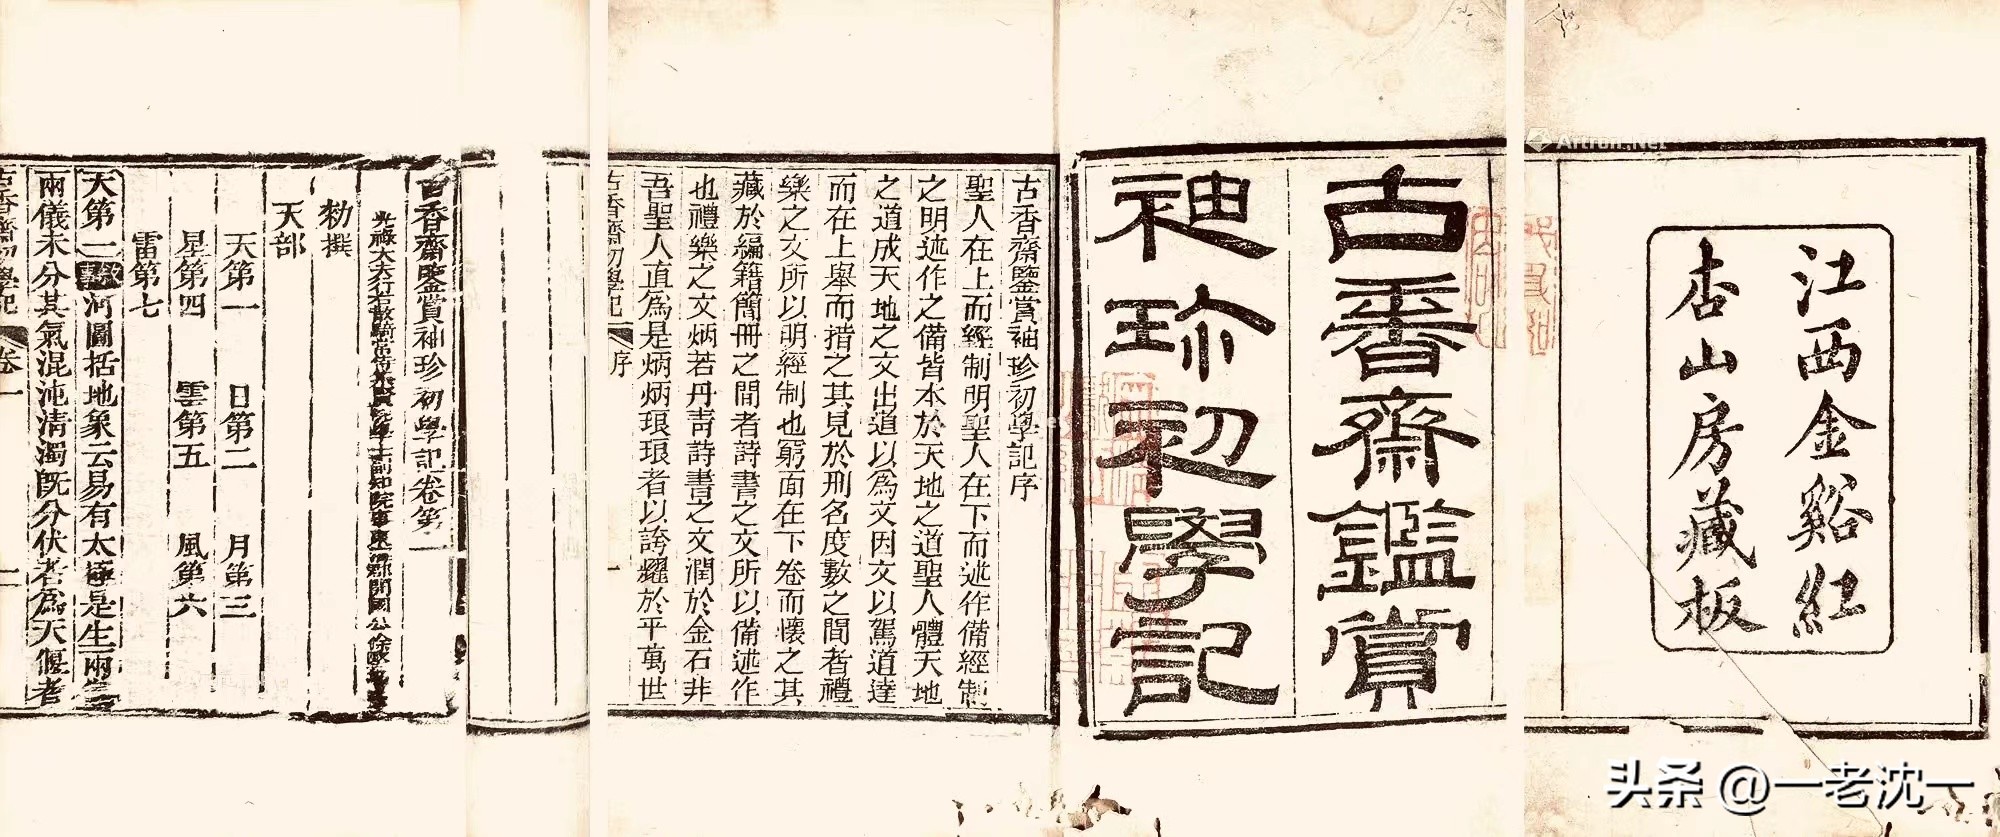 江西金谿紅
杏山房藏板
古香齋鑑賞
袖珍初學記
古香齋鑒賞袖珍初學記序
聖人在上而經制明聖人在下而述作備經制
之明述作之備皆本於天地之道聖人體天地
之道成天地之文出道以為文因文以駕道達
而在上舉而措之其見於刑名度數之間者禮
樂之文所以明經制也窮而在下卷而懷之其
藏於編籍簡冊之間者詩書之文所以備述作
也禮樂之文炳若丹靑詩書之文潤於金石非
吾聖人直為是炳炳琅琅者以誇耀於平萬世
古香齋初學記 序 一
古香齋鑒賞袖珍初學記卷第一
光祿大夫行右散騎常侍集賢院學士副知院事東海郡開國公徐堅
勑撰
天部
天第一 日第二 月第三
星第四 雲第五 風第六
雷第七
天第一 河圖括地象云易有太極是生兩儀
兩儀未分其氣混沌淸濁旣分伏者為天偃者
古香齋初學記 卷一 一
Artron.Net
头条 @一老沈一